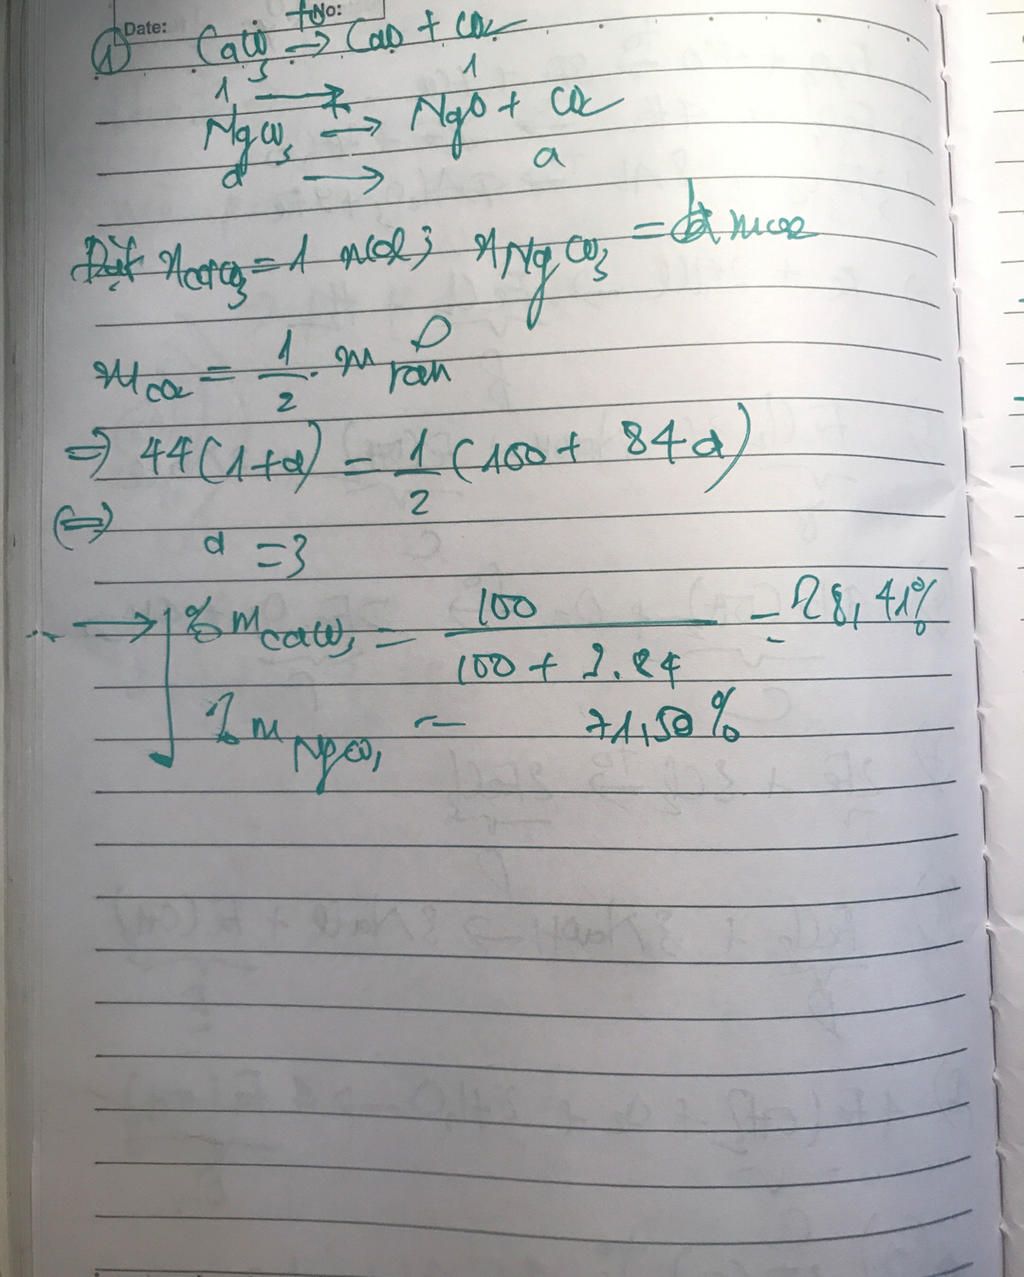 Date: No:
① CaCO3 t°→ CaO + CO2
1 → 1
MgCO3 t°→ MgO + CO2
a → a
Đặt nCaCO3 = 1 mol; nMgCO3 = a
mCO2 = 1/2 . m rắn
⇒ 44(1+a) = 1/2 (100 + 84a)
(⇔)
a = 3
→ % mCaCO3 = 100 / (100 + 3.84) = 28,41%
% mMgCO3 = 71,59%